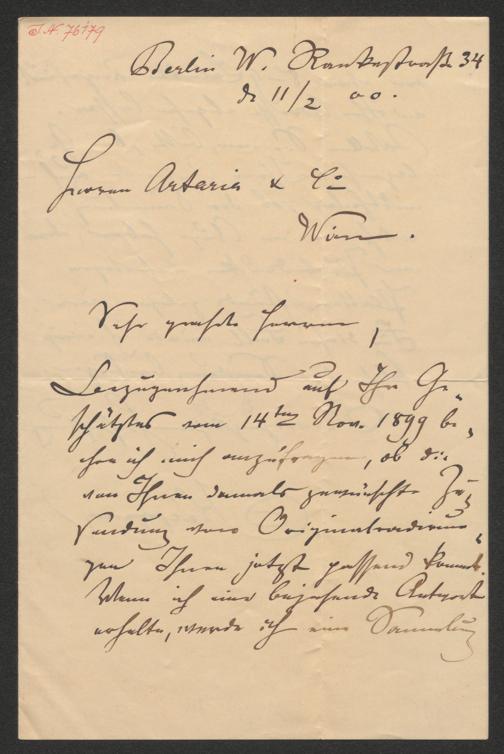 J.N. 76179
Berlin W. Rankestraße 34
d. 11/2 00.
Herren Artaria & Co
Wien.
Sehr geehrte Herren,
Bezugnehmend auf Ihr Ge-
schätztes vom 14ten Nov. 1899 be-
ehre ich mich anzufragen, ob die
von Ihnen damals gewünschte Zu-
sendung von Originalradierun-
gen Ihnen jetzt passend kommt.
Wenn ich eine bejahende Antwort
erhalte, werde ich eine Sammlung